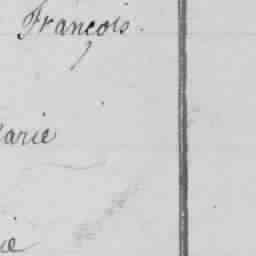 François.
arie
ie